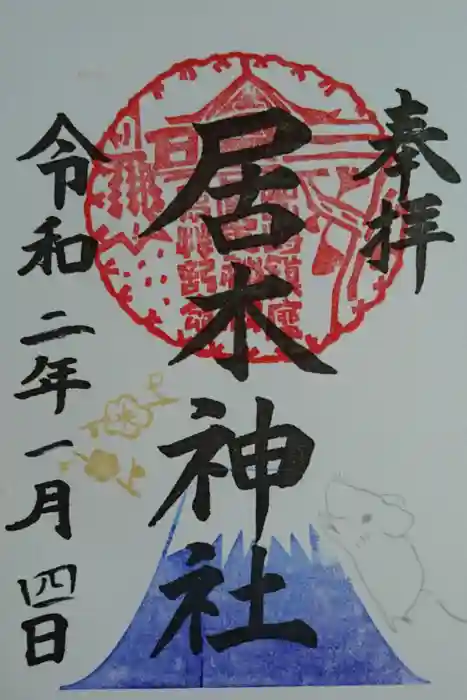 奉拝
居木神社
令和二年一月四日